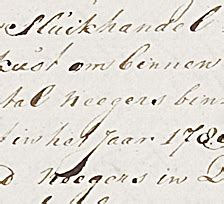 Sluikhandel
kust om binnen
tal Neegers bin
in het Jaar 178
Neegers in